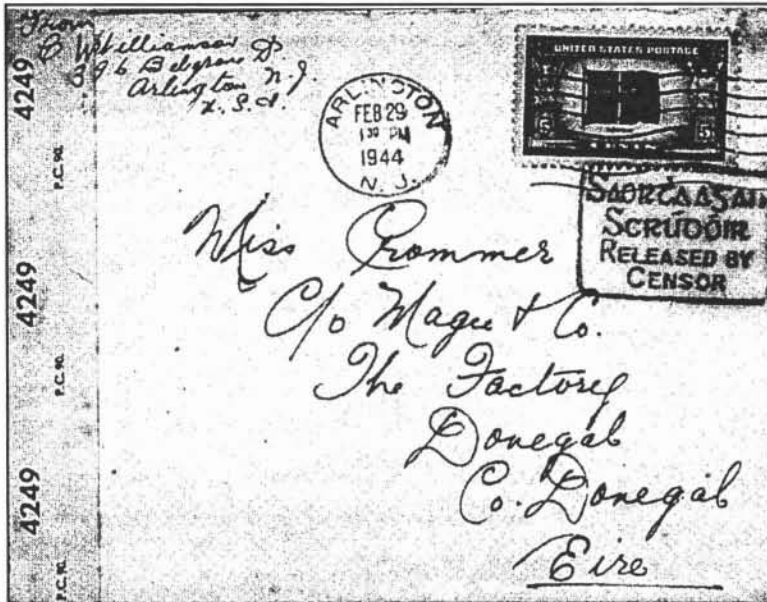 From
B Williamson
396 Belgrove Dr
Arlington N.J.
U.S.A.
4249
P.C. 90.
4249
P.C. 90.
4249
P.C. 90.
ARLINGTON
FEB 29
1 30 PM
1944
N. J.
UNITED STATES POSTAGE
5 5
SAORTA AG AN
SCRÚDÓIR
RELEASED BY
CENSOR
Miss Crommer
C/o Magee & Co.
The Factory
Donegal
Co. Donegal
Eire